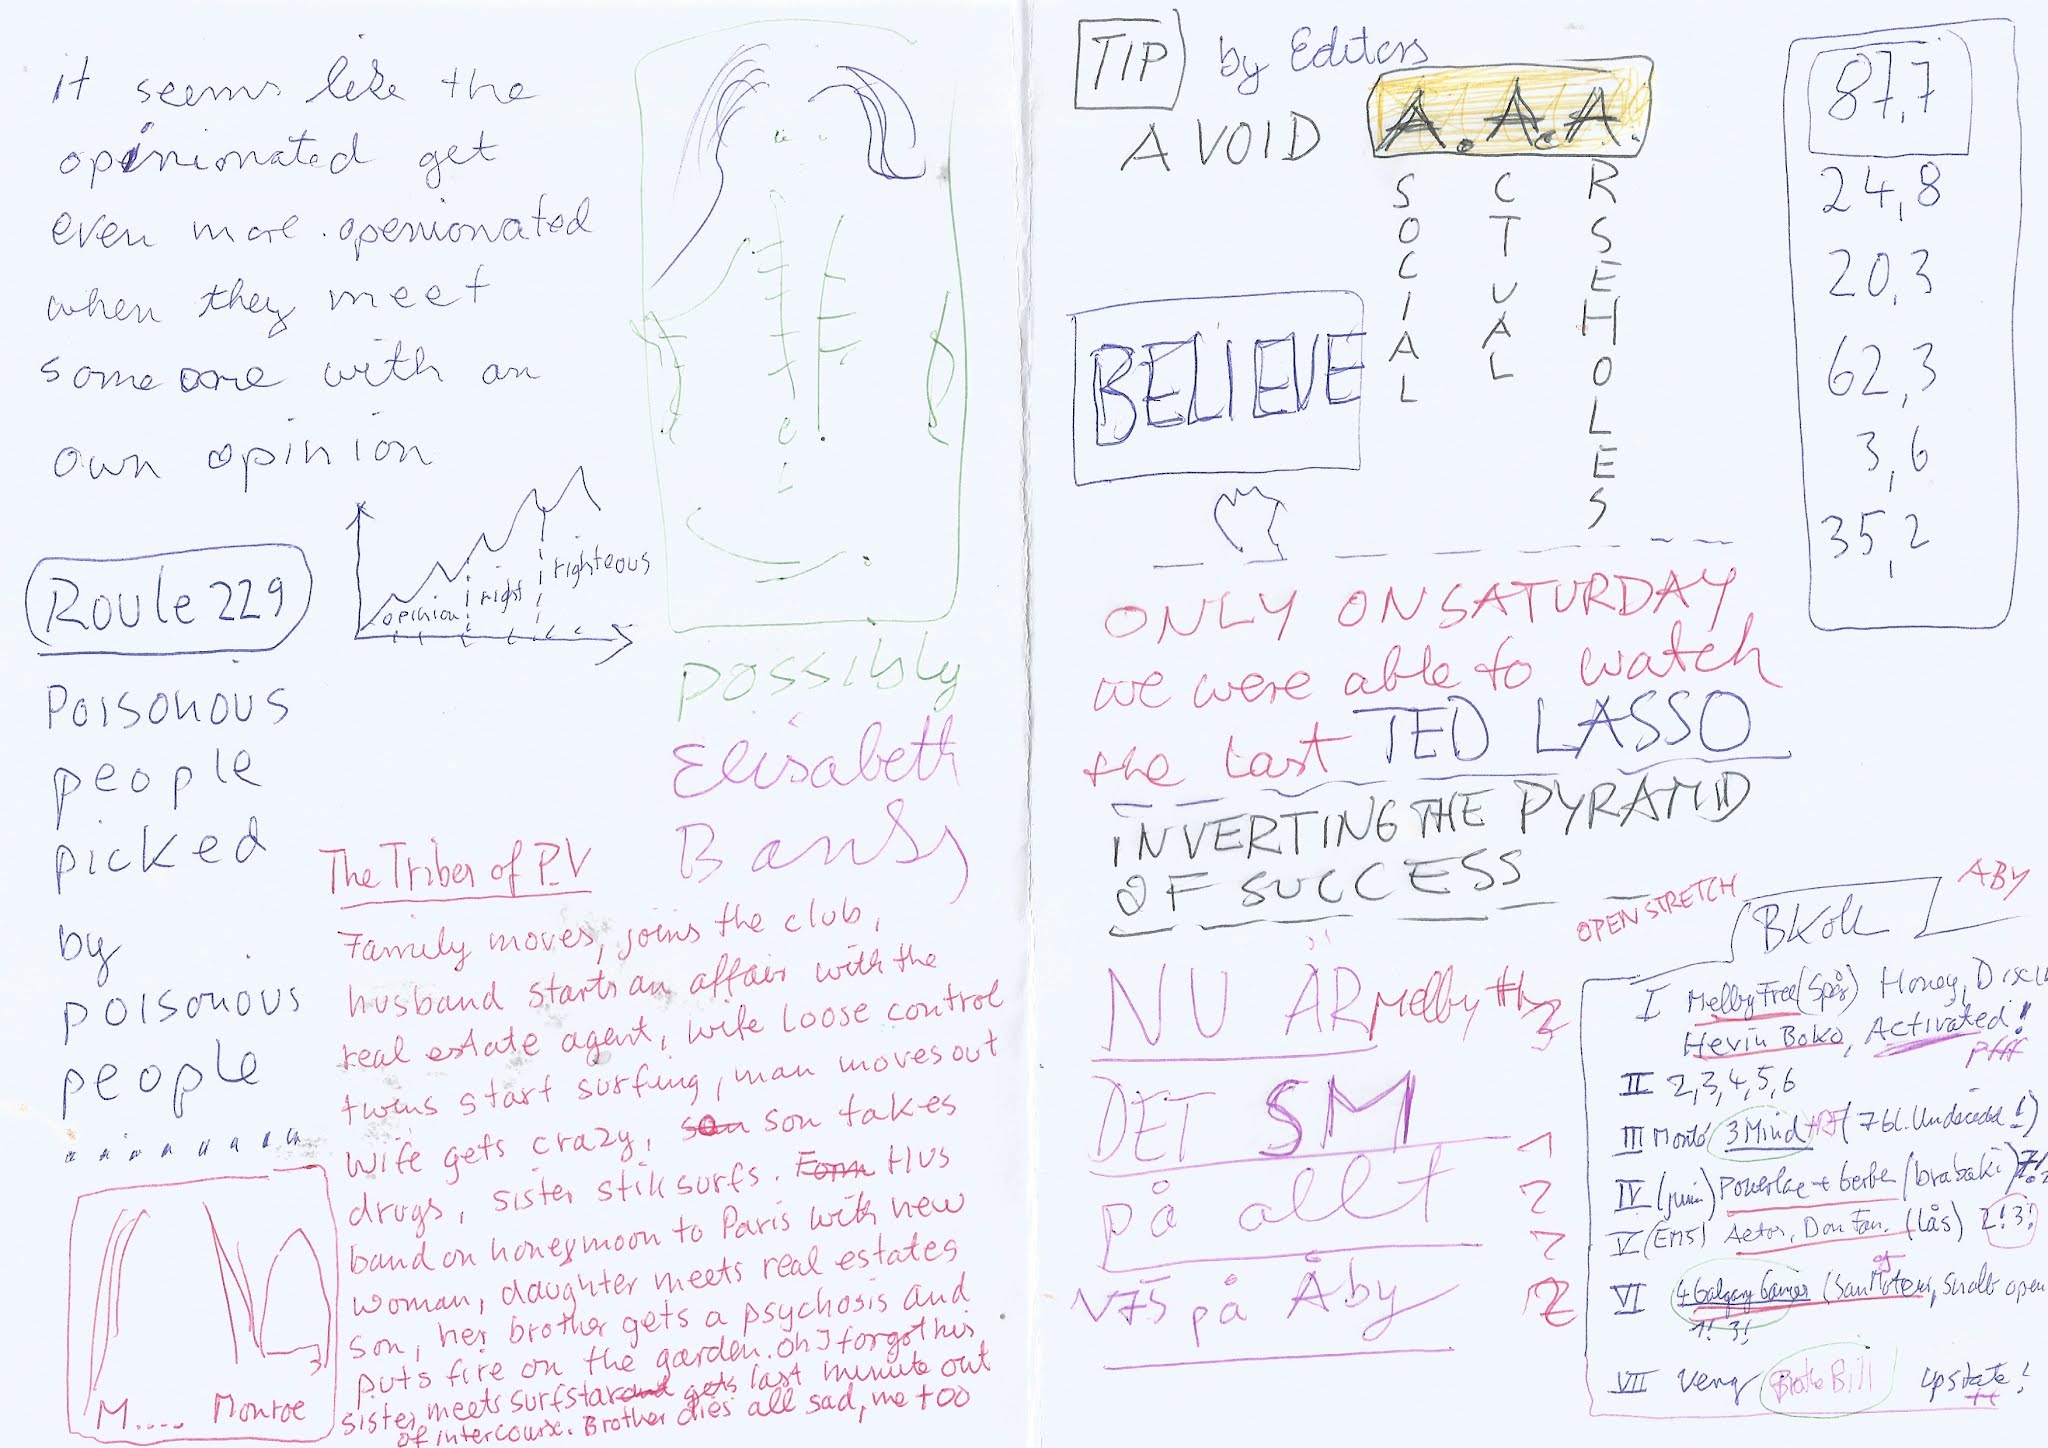 it seems like the
opinionated get
even more openionated
when they meet
someone with an
own opinion
opinion
right
righteous
Route 229
Poisonous
people
picked
by
poisonous
people
M.... Monroe
possibly
Elisabeth
Banks
The Tribes of P.V
Family moves, joins the club,
husband starts an affair with the
real estate agent, wife loose control
twins start surfing, man moves out
wife gets crazy, son takes
drugs, sister stik surfs. Form Hus
band on honeymoon to Paris with new
woman, daughter meets real estates
son, her brother gets a psychosis and
puts fire on the garden. Oh I forgot his
sister meets surfstar and gets last minute out
of intercourse. Brother dies all sad, me too
TIP by Editors
AVOID A.A.A.
SOCIAL
CTUAL
RSEHOLES
BELIEVE
87,7
24,8
20,3
62,3
3,6
35,2
ONLY ON SATURDAY
we were able to watch
the last TED LASSO
INVERTING THE PYRAMID
OF SUCCESS
NU ÄR
DET SM
på allt
V75 på Åby
Melby
3
1
2
7
OPEN STRETCH
ABY
I Melby Free (Spår) Honey,
Hevin Boko, Activated!
pfff
II 2,3,4,5,6
III 3 Mind
IV
V (EM5) Don Fan. (lås) 2! 3!
VI
1! 3!
VII Upstate!